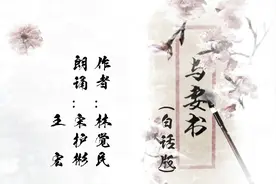 与妻书
(白话版)
作者:林觉民
朗诵:束护彬
王宏